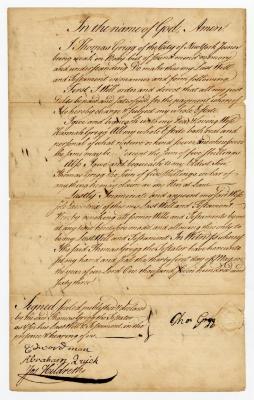 In the name of God, Amen
I Thomas Grigg of the City of New York Joiner
being weak in Body but of sound mind memory
and understanding Do make this my last Will
and Testament in manner and form following
First I Will order and direct that all my just
Debts be paid and satisfied for the payment whereof
I do hereby charge
I give and bequeath unto my Loving Wife
Hannah Grigg All my whole Estate both real and
personal of what nature or kind soever and wheresoever
the same may be Except the Sum of five Shillings
Also I give and bequeath unto my Eldest Son
Thomas Grigg the Sum of five Shillings in bar of
any thing he may claim as my Heir at Law
Lastly I nominate and appoint my said Wife
Executrix of this my Last Will and Testament
Hereby revoking all former Wills and Testaments by me
at any time heretofore made and allowing this only to
be my Last Will and Testament In Witness whereof
I the said Thomas Grigg the Testator have hereunto
set my hand and Seal the thirty first day of May in
the year of our Lord One thousand seven hundred and
fifty three
Signed sealed published & declared
by the said Thomas Grigg the Testator
as & for his Last Will & Testament in the
presence & hearing of us
Thos Grigg
Edward man
Abraham
Jos Hildreth